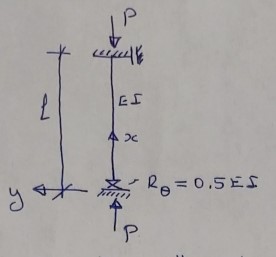 P
l
EI
x
y
R_θ = 0.5 EI
P